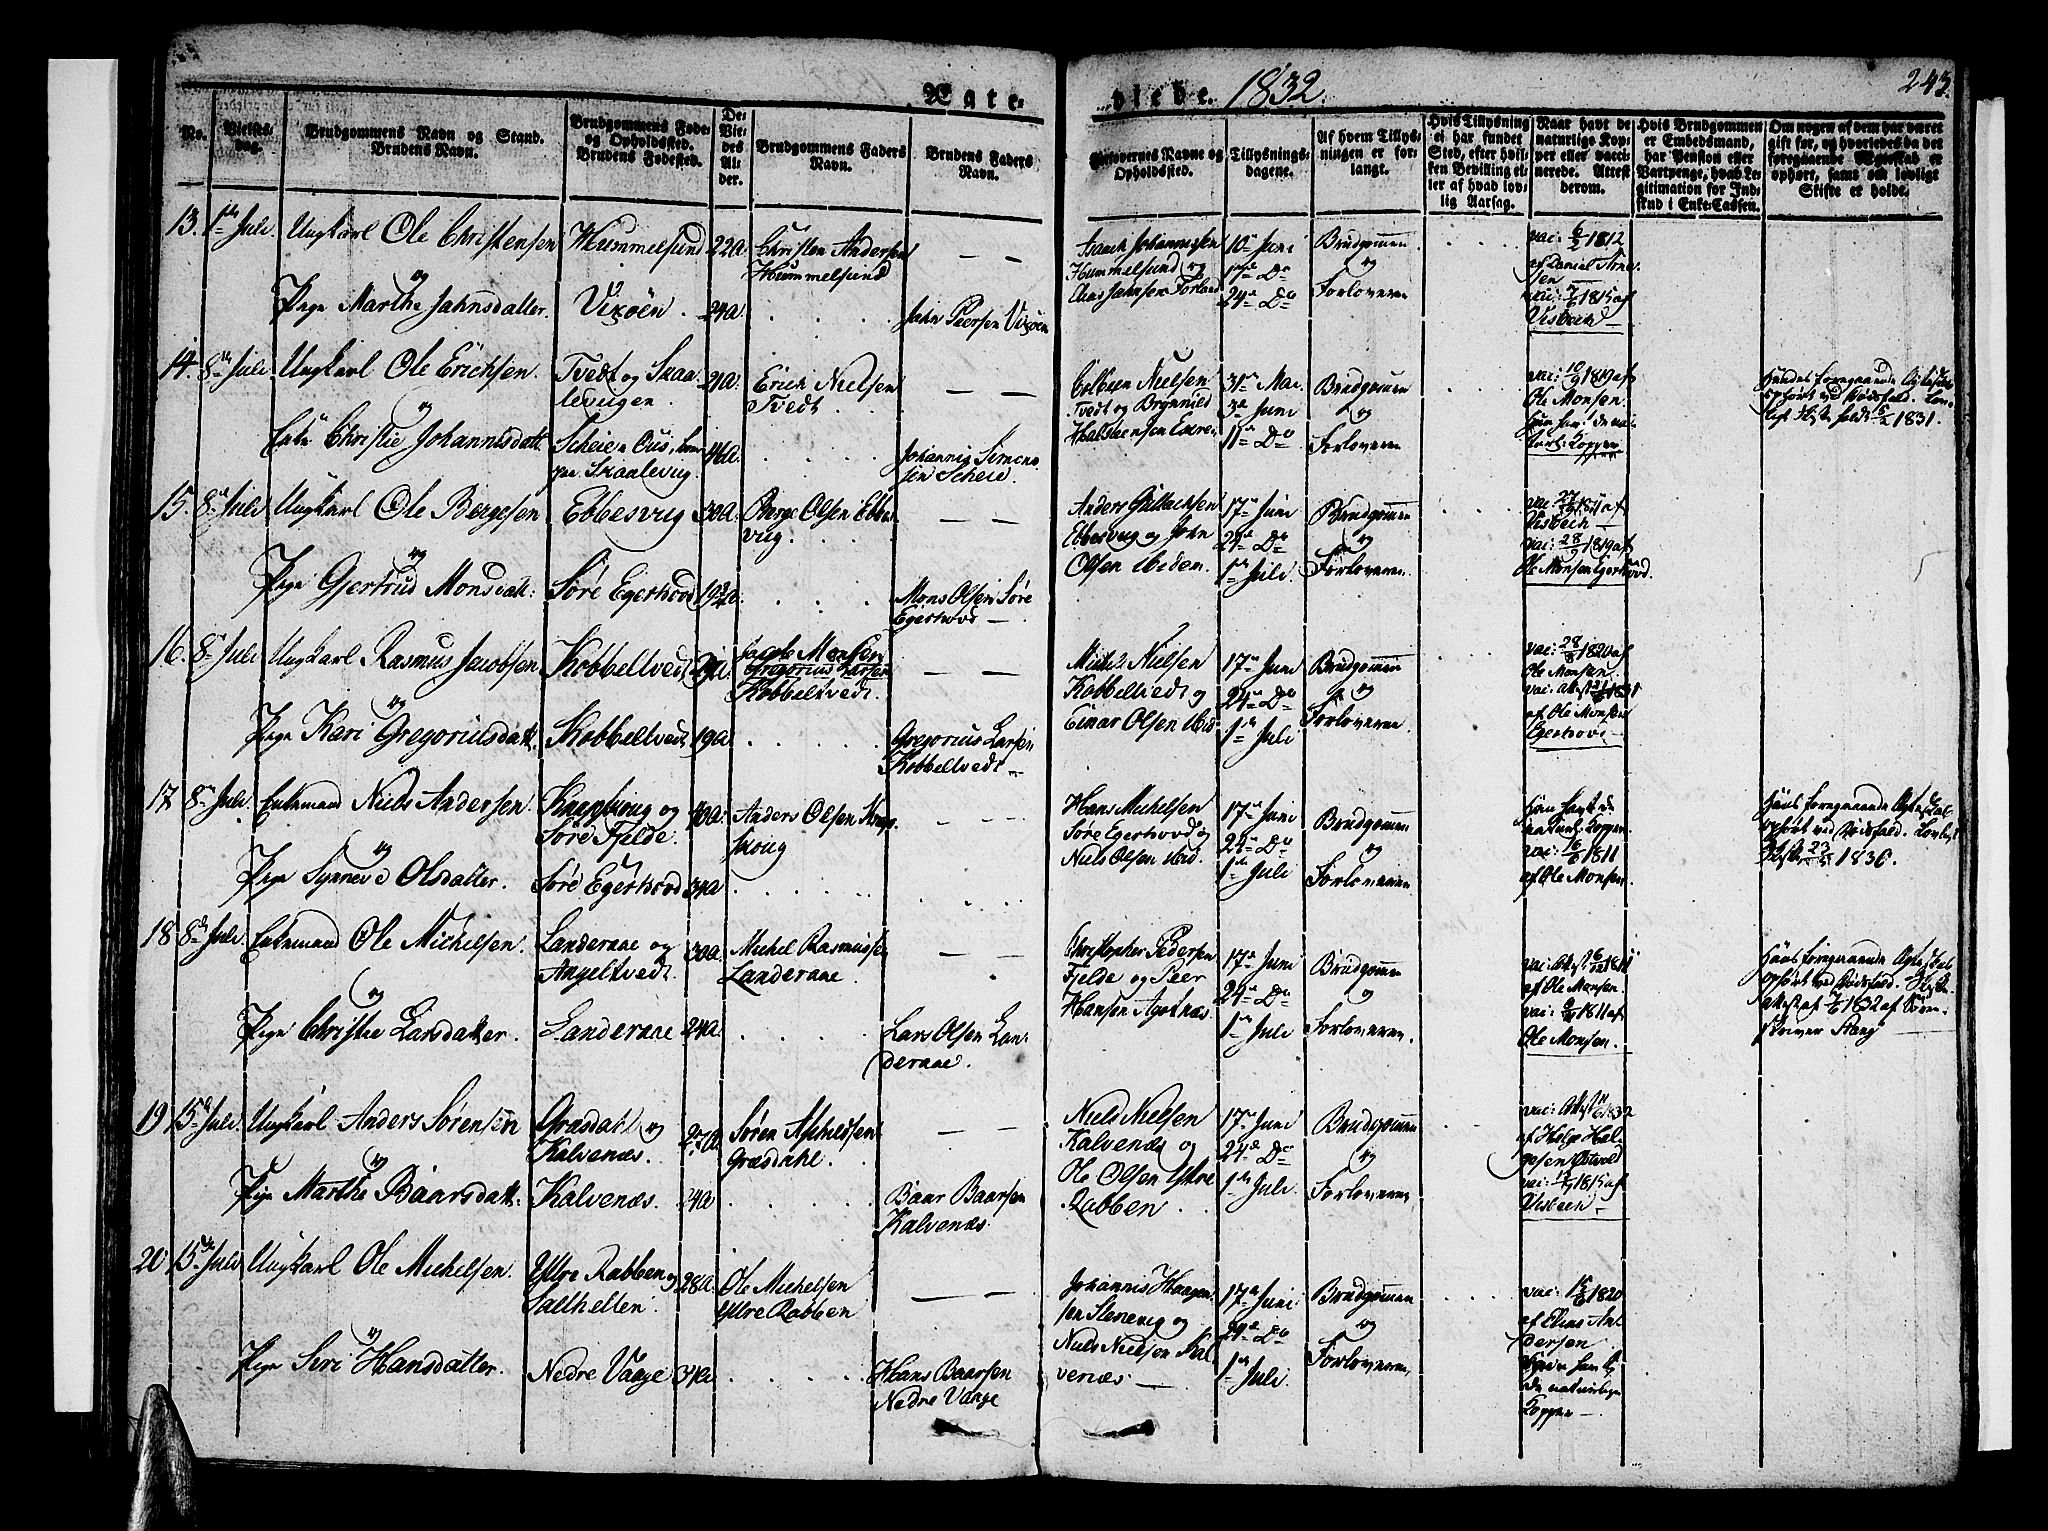 Ægte-
viede. 1832.
243.
No.
Vielses-
dag.
Brudgommens Navn og Stand.
Brudens Navn.
Brudgommens Føde-
og Opholdssted.
Brudens Fødested.
De
Vie-
des
Al-
der.
Brudgommens Faders
Navn.
Brudens Faders
Navn.
Forlovernes Navne og
Opholdsted.
Tillysnings-
dagene.
Af hvem Tillys-
ningen er for-
langt.
Hvis Tillysning
ei har fundet
Sted, efter hvil-
ken Bevilling el-
ler af hvad lov-
lig Aarsag.
Naar havt de
naturlige Kop-
per eller vacci-
nerede. Attest
derom.
Hvis Brudgommen
er Embedsmand,
har Pension eller
Vartpenge, hvad Le-
gitimation for Ind-
skud i Enke-Cassen.
Om nogen af dem har været
gift før, og hvorledes da det
foregaaende Ægteskab er
ophørt, samt om lovligt
Skifte er holdt.
13. 1ste Juli Ungkarl Ole Christensen
og
Pige Marthe Jahnsdatter.
Hummelsund
Vixøen.
22a
24a
Christen Andersen
Hummelsund
Jahn Peersen Vixøen
Johannessen
Hummelsund og
Jahnsen Forland
10de Juni
17de Do
24de Do
Brudgommen
og
Forloveren
vac: 6/2 1812
af Daniel Arne-
sen
vac: 7/6 1815 af
Visbech
14. 8de Juli Ungkarl Ole Erichsen.
og
Enke Christie Johannisdatt.
Tvedt og Skaa-
levigen.
Skaalevig.
21a.
46a.
Erich Nielsen
Tvedt
Johannis Simon-
sen Scheie.
Colbeen Nielsen
Tvedt og Brynnild
Halsteensen
31te Mai
3de Juni
11te Do
Brudgommen
og
Forloveren
vac: 10/9 1819 af
Ole Monsen.
Hun havt de na-
turl: Kopper
Hendes foregaaende Ægteskab
ophørt ved Dødsfald. Lov-
ligt Skifte holdt 5/2 1831.
15. 8de Juli Ungkarl Ole Bergesen
og
Pige Gjertrud Monsdatt:
Ebbesvug
Søre Egerhovd
30a.
Berge Olsen Ebbes-
vug.
Mons Olsen Søre
Egerhovd
Anders Gullachsen
Ebbesvug og John
Olsen ibiden.
17de Juni
24de Do
1ste Juli.
Brudgommen
og
Forloveren
Visbech
vac: 28/9 1819 af
Ole Monsen Egerhovd.
16. 8de Juli Ungkarl Rasmus Jacobsen
og
Pige Kari Gregoriusdatt.
Kobbeltvedt
Kobbeltvedt
29a
19a
Jacob Monsen
Gregorius Larsen
Kobbeltvedt.
Gregorius Larsen
Kobbeltvedt
Nielsen
Kobbeltvedt og
Einar Olsen ibid.
17de Juni
24de Do
1ste Juli
Brudgommen
og
Forloveren
vac: 28/8 1820 af
Ole Monsen.
af Ole Monsen
Egerhovd
17 8de Juli. Enkemand Niels Andersen.
og
Pige Synneve Olsdatter.
Knapskoug og
Søre Fjelde.
Søre Egerhovd
40a.
34a
Anders Olsen Knap-
skoug
Hans Michelsen
Søre Egerhovd og
Niels Olsen ibid.
17de Juni
24de Do
1ste Juli
Brudgommen
og
Forloveren
Hun havt de
naturl: Kopper
vac: 16/6 1811
af Ole Monsen.
Hans foregaaende Ægteskab
ophørt ved Dødsfald. Lovligt
Skifte 23/5 1830.
18 8de Juli. Enkemand Ole Michelsen.
og
Pige Christie Larsdatter.
Landeraae og
Angeltvedt.
Landeraae
30a.
24a.
Michel Rasmussen
Landeraae
Lars Olsen Lan-
deraae.
Christopher Pedersen
Fjelde og Peer
Hansen Agotnæs
17de Juni
24de Do
1ste Juli
Brudgommen
og
Forloveren.
af Ole Monsen.
vac: 1811 af
Ole Monsen.
Hans foregaaende Ægteskab
ophørt ved Dødsfald. Skifte-
attest af 7/6 1832 af Soren-
skriver Stang
19 15de Juli. Ungkarl Anders Sørensen
og
Pige Marthe Baarsdatt.
Græsdahl og
Kalvenæs.
Kalvenæs.
27a.
24a
Søren
Græsdahl.
Baar Baarsen
Kalvenæs.
Niels Nielsen
Kalvenæs og
Ole Olsen Ytre
Rabben.
17de Juni
24de Do
1ste Juli.
Brudgommen
og
Forloveren,
af Helge Hel-
gesen Østvold
Visbech
20 15de Juli Ungkarl Ole Michelsen.
og
Pige Siri Hansdatter.
Ytre Rabben og
Salthellen.
Nedre Vaage
28a.
34a
Ole Michelsen
Ytre Rabben
Hans Baarsen
Nedre Vaage
Johannis Haagen-
sen Steenevig og
Niels Nielsen Kal-
venæs.
17de Juni
24de Do
1ste Juli.
Brudgommen
og
Forloveren,
vac: 15/6 1820
af Elias An-
dersen
de naturlige
Kopper